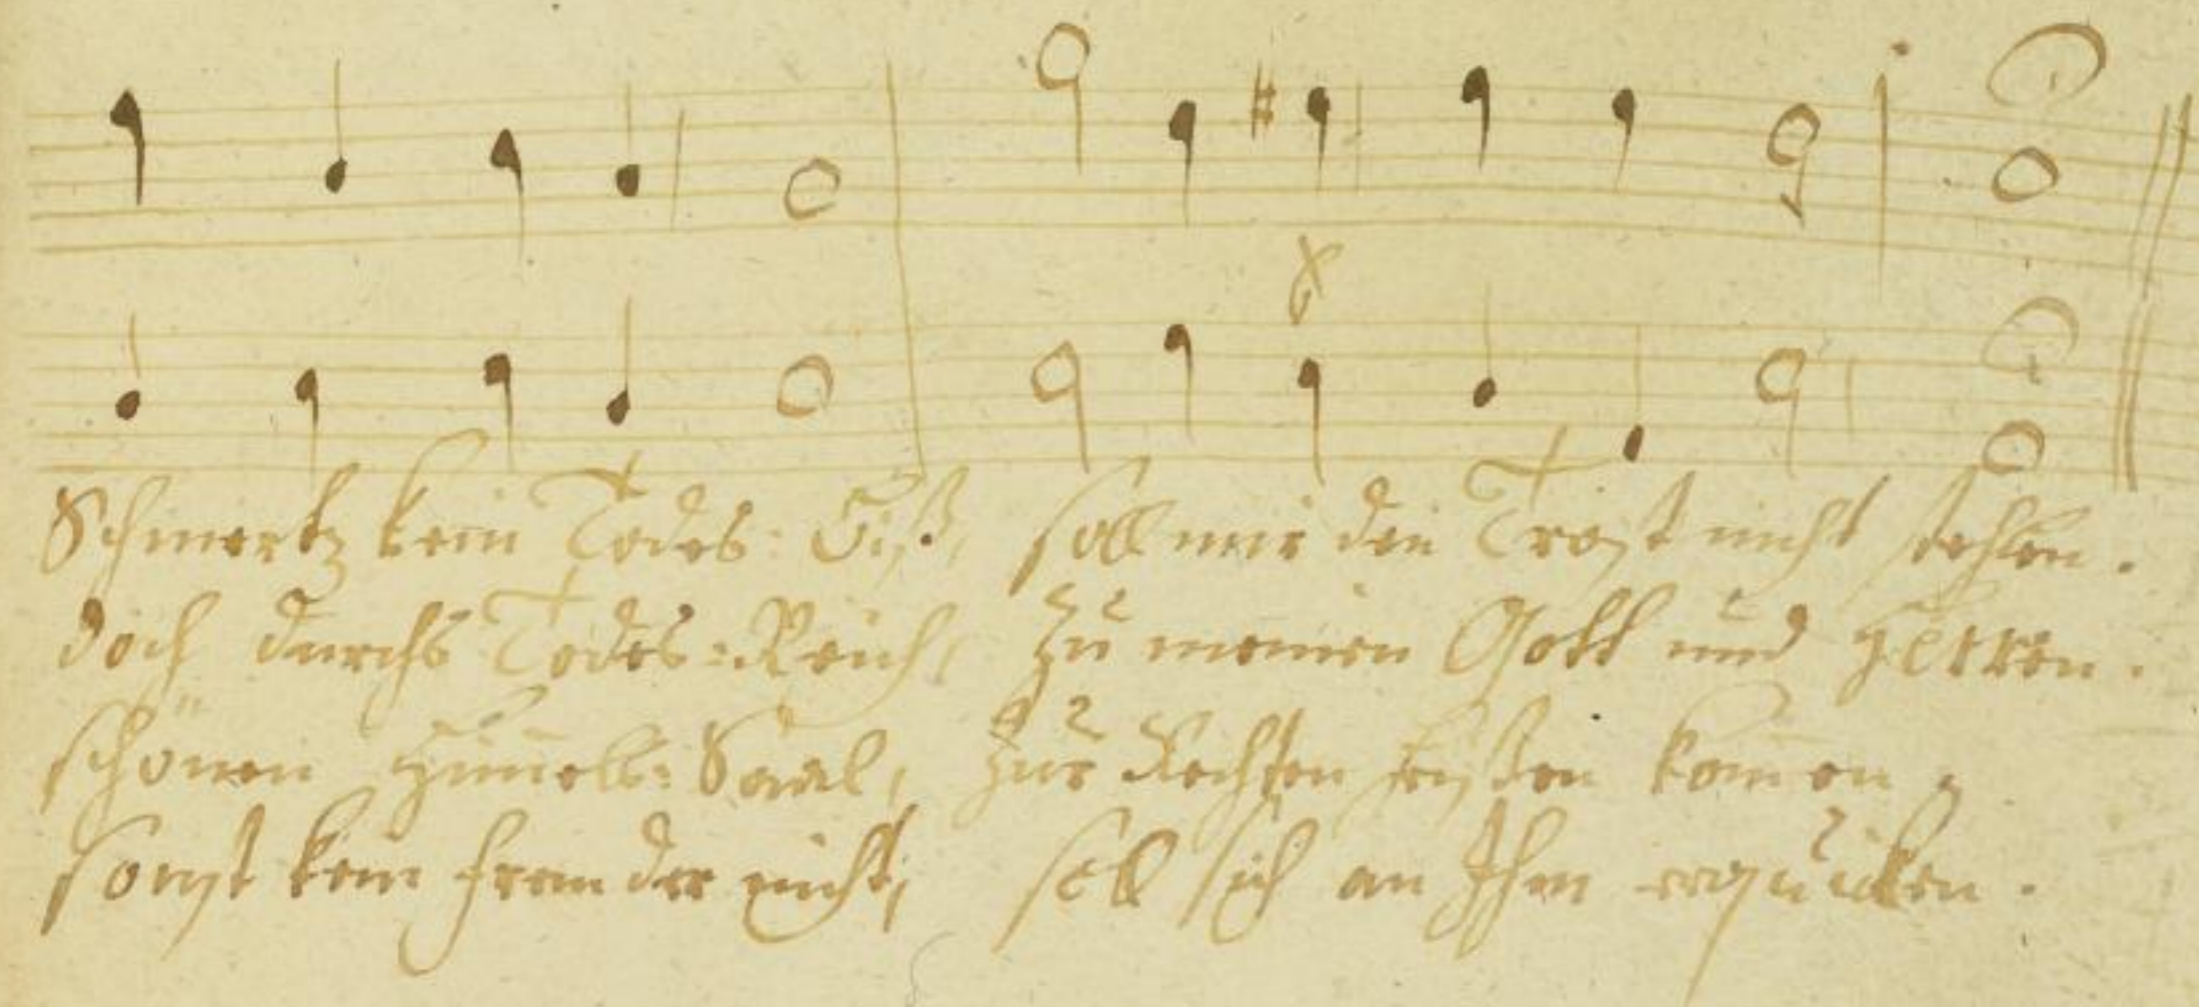 Schmertz kein Todes-Biß, soll mir den Trost nicht stehlen.
doch durchs Todes-Reich, zu meinen Gott und HErren.
schönen Himels-Saal, zur Rechten komen,
sonst kein fremder nicht, soll sich an Ihm erquicken.